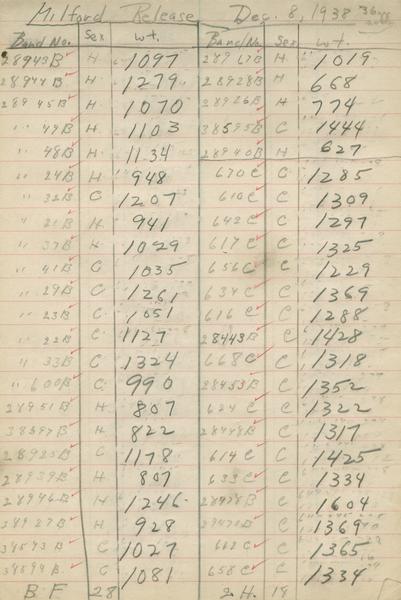 Milford Release Dec. 8, 1938
Band No. Sex wt. Band No. Sex wt.
28943B H 1097 H 1019
28944B H 1279 28928B H 668
28945B H 1070 28926B H 774
" 49B H 1103 38595B C 1444
" 48B H 1134 28940B H 627
" 24B H 948 670C C 1285
" 32B C 1207 610C C 1309
" 21B H 941 642C C 1297
" 37B H 1029 617C C 1325
" 41B C 1035 656C C 1229
" 29B C 1261 634C C 1369
" 23B C 1051 616C C 1288
" 22B C 1127 28443B C 1428
" 33B C 1324 668C C 1318
" 600B C 990 28453B C 1352
28951B H 807 624C C 1322
38597B H 822 28448B C 1317
28925B C 1178 614C C 1425
28939B H 807 633C C 1334
28946B H 1246 C 1604
28927B H 928 C 1369
38593B C 1027 C 1365
38594B C 1081 658C C 1334
B.F. 28 H. 18